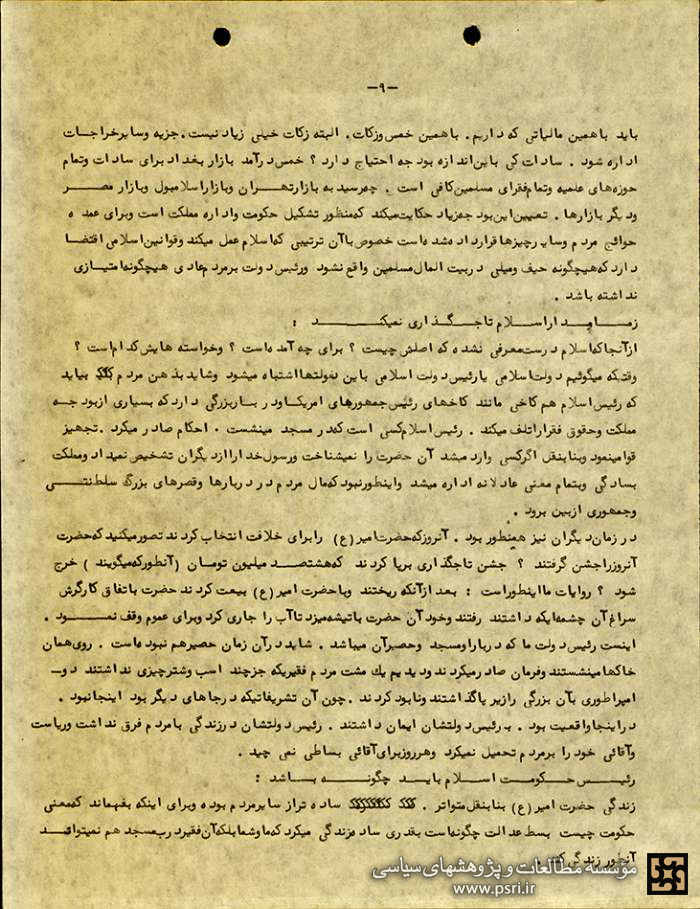 -۹-
باید باهمین مالیاتی که داریم. باهمین خمس وزکات. البته زکات خیلی زیاد نیست. جزیه وسایرخراجات
اداره شود . سادات کی باین اندازه بودجه احتیاج دارد ؟ خمس درآمد بازار بغداد برای سادات وتمام
حوزه‌های علمیه وتمام فقرای مسلمین کافی است . چه رسید به بازارتهران وبازاراسلامبول وبازار مصر
ودیگر بازارها . تعیین این بودجه زیاد حکایت میکند که منظور تشکیل حکومت واداره مملکت است وبرای عمده
حوائج مردم وسایر چیزها قرارداده شده است خصوص باآن ترتیبی که اسلام عمل میکند وقوانین اسلامی اقتضا
دارد که هیچگونه حیف ومیلی دربیت المال مسلمین واقع نشود ورئیس دولت برمردم عادی هیچگونه امتیازی
نداشته باشد .
زمامدار اسلام تاجگذاری نمیکند :
ازآنجا که اسلام درست معرفی نشده که اصلش چیست ؟ برای چه آمده است ؟ وخواسته هایش کدام است ؟
وقتیکه میگوئیم دولت اسلامی یا رئیس دولت اسلامی باین دولتها اشتباه میشود وشاید بذهن مردم بیاید
که رئیس اسلام هم کاخی مانند کاخهای رئیس جمهورهای امریکا ودربار بزرگی دارد که بسیاری ازبودجه
مملکت وحقوق فقرا را تلف میکند . رئیس اسلام کسی است که در مسجد مینشست . احکام صادر میکرد . تجهیز
قوا مینمود وبنابنقل اگرکسی وارد میشد آن حضرت را نمیشناخت ورسول خدا را ازدیگران تشخیص نمیداد ومملکت
بسادگی وبتمام معنی عادلانه اداره میشد واینطور نبود که مال مردم در دربارها وقصرهای بزرگ سلطنتی
وجمهوری ازبین برود .
در زمان دیگران نیز همینطور بود . آنروز که حضرت امیر (ع) را برای خلافت انتخاب کردند تصور میکنید که حضرت
آنروز را جشن گرفتند ؟ جشن تاجگذاری برپا کردند که هشتصد میلیون تومان (آنطور که میگویند ) خرج
شود ؟ روایات ما اینطور است : بعد ازآنکه ریختند وباحضرت امیر (ع) بیعت کردند حضرت باتفاق کارگرش
سراغ آن چشمه ایکه داشتند رفتند وخود آن حضرت باتیشه میزد تاآب را جاری کرد وبرای عموم وقف نمود .
اینست رئیس دولت ما که دربار او مسجد وحصیرآن میباشد . شاید درآن زمان حصیر هم نبوده است . روی همان
خاکها مینشستند وفرمان صادر میکردند ودیدیم یك مشت مردم فقیر که جز چند اسب وشتر چیزی نداشتند دو-
امپراطوری بآن بزرگی را زیر پا گذاشتند ونابود کردند . چون آن تشریفاتیکه درجاهای دیگر بود اینجا نبود .
دراینجا واقعیت بود . به رئیس دولتشان ایمان داشتند . رئیس دولتشان درزندگی بامردم فرق نداشت وریاست
وآقائی خود را برمردم تحمیل نمیکرد وهرروز برای آقائی بساطی نمی چید .
رئیس حکومت اسلام باید چگونه باشد :
زندگی حضرت امیر (ع) بنابنقل متواتر . ساده تر از سایر مردم بوده وبرای اینکه بفهماند که معنی
حکومت چیست بسط عدالت چگونه است بقدری ساده زندگی میکرد که ما وشما بلکه آن فقیر درب مسجد هم نمیتواند
آنطور زندگی کند .
مؤسسه مطالعات و پژوهشهای سیاسی
www.psri.ir